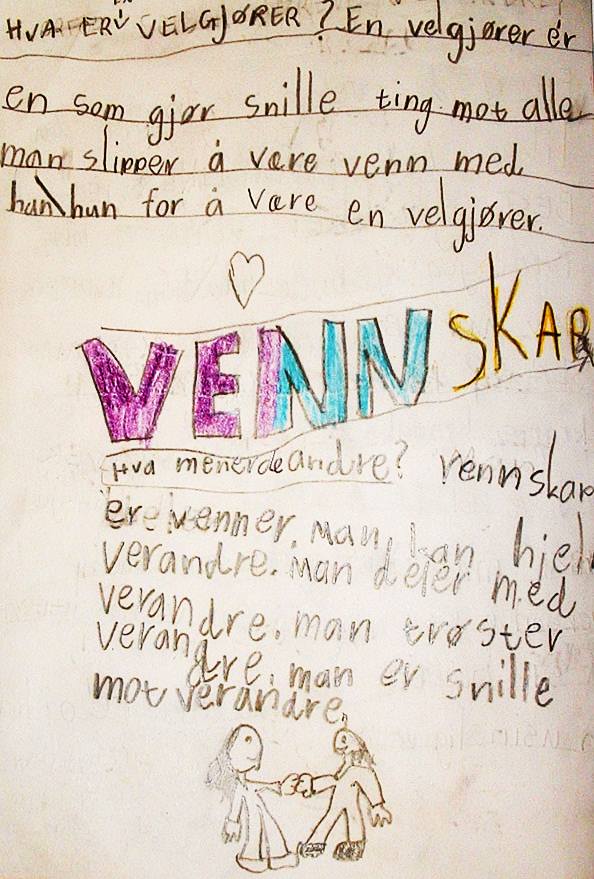 HVA ER EN VELGJØRER? En velgjører er
en som gjør snille ting mot alle
man slipper å være venn med
han\hun for å være en velgjører.
VENNSKAP
Hva mener de andre? Vennskap
er venner. man kan hjelp
verandre. man deler med
verandre. man trøster
veran
dre. man er snille
mot verandre.